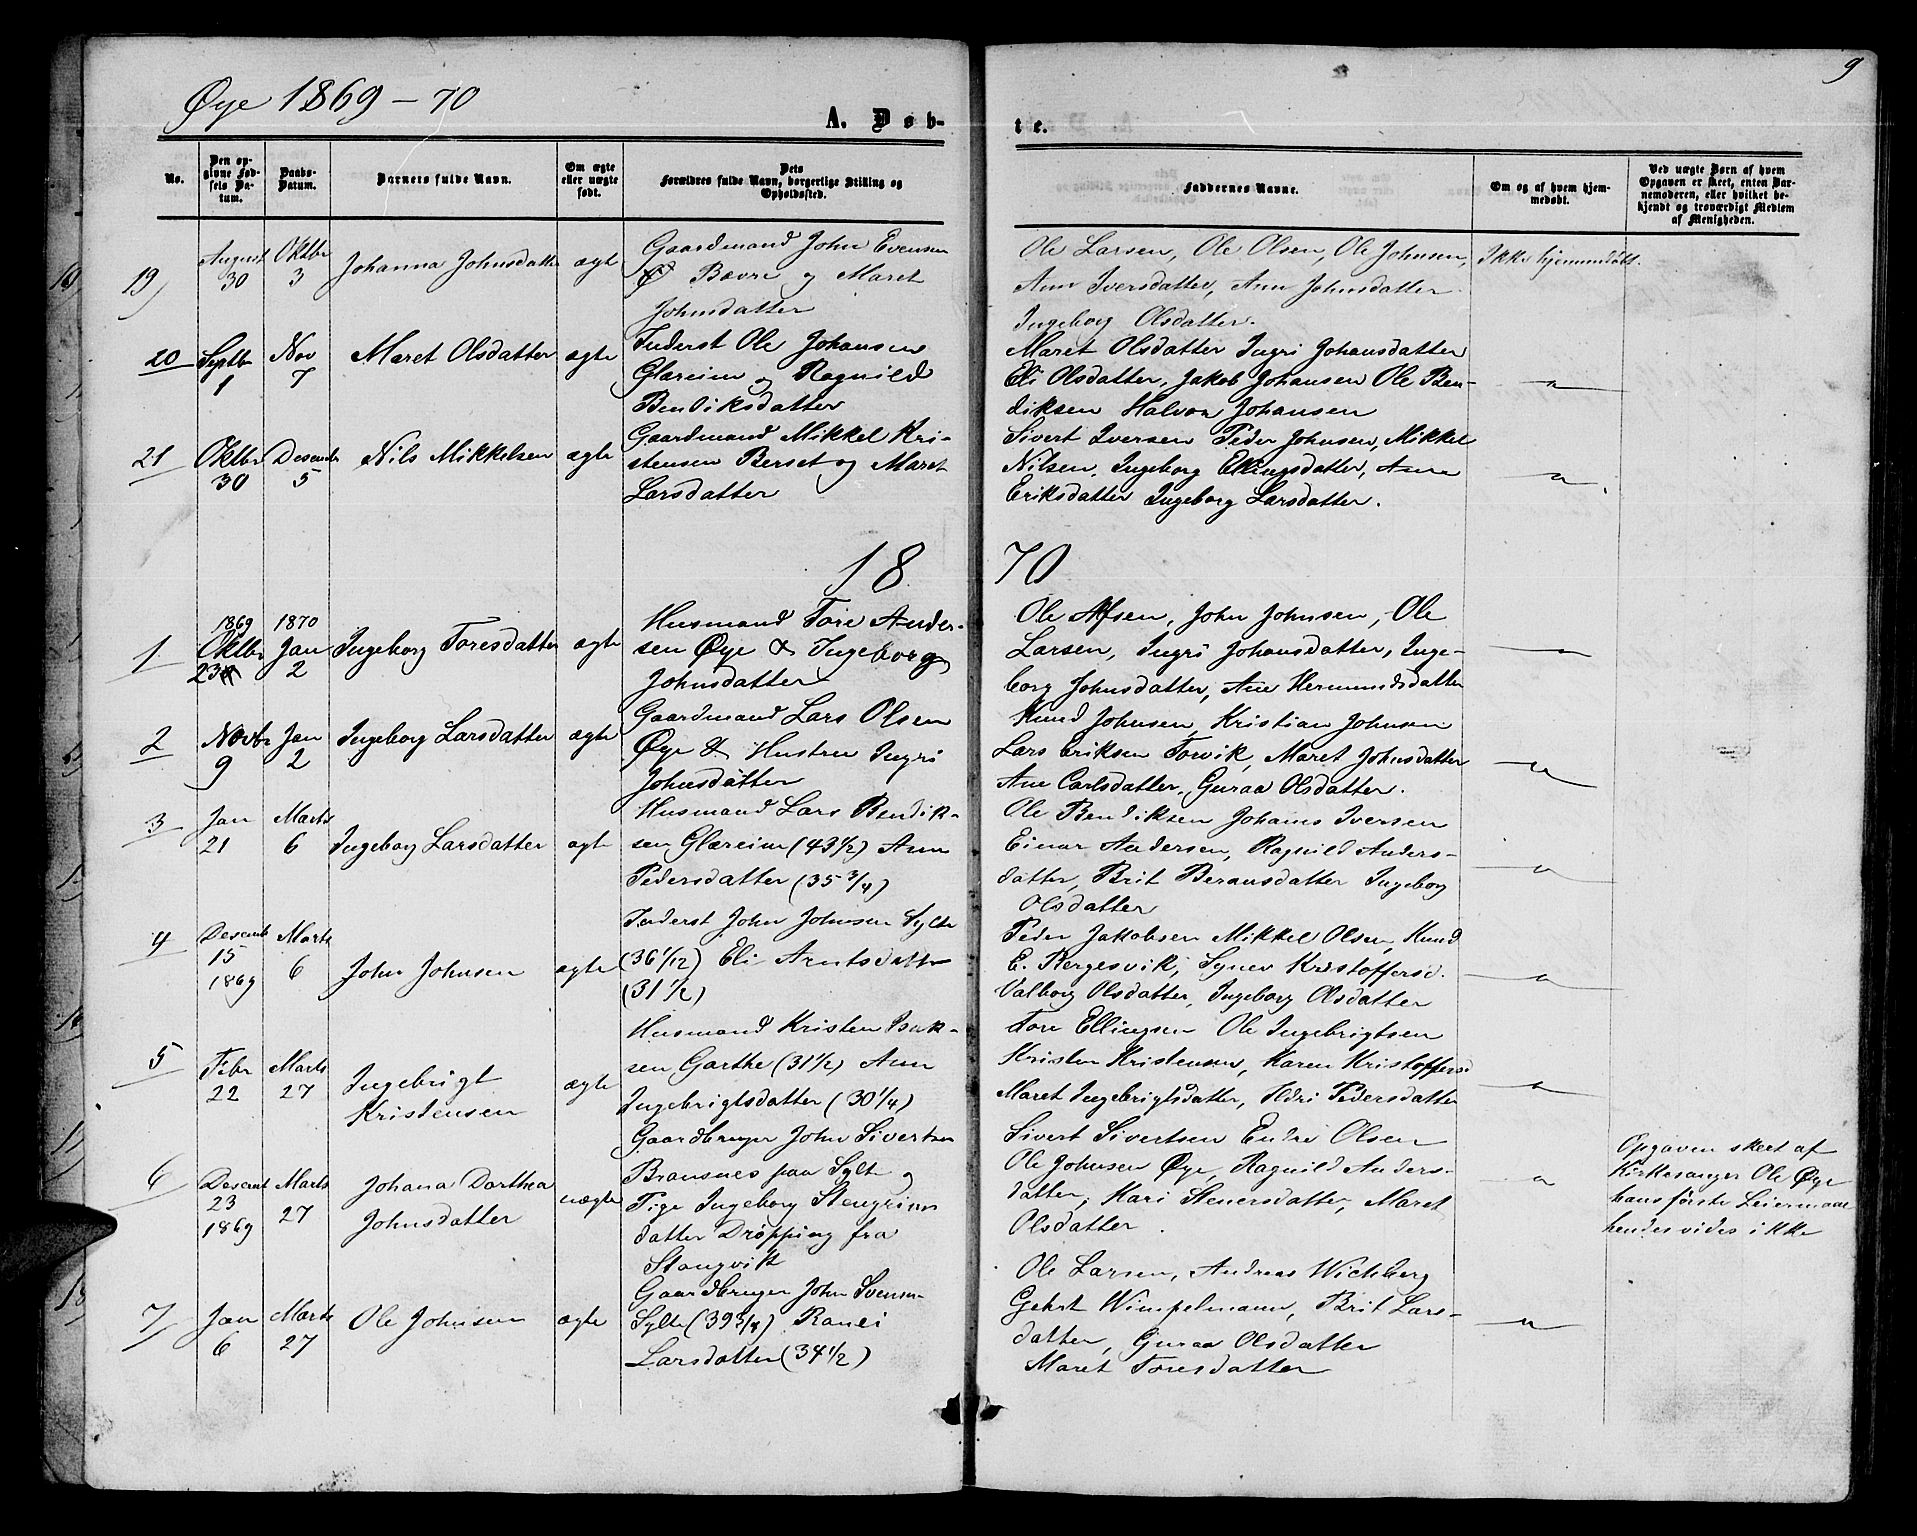 Øye 1869-70
9
A. Døb-
te.
No.
Den op-
givne Fød-
sels Da-
tum.
Daabs-
Datum.
Barnets fulde Navn.
Om ægte
eller uægte
født.
Dets
Forældres fulde Navn, borgerlige Stilling og
Opholdssted.
Faddernes Navne.
Om og af hvem hjem-
medøbt.
Ved uægte Børn af hvem
Opgaven er skeet, enten Bar-
nemoderen, eller hvilket be-
kjendt og troværdigt Medlem
af Menigheden.
19)
August
30
Oktbr
3
Johanna Johnsdatter
ægte
Gaardmand John Evensen
Ø Bævre og Maret
Johnsdatter
Ole Larsen, Ole Olsen, Ole Johnsen,
Ann Iversdatter, Ann Johnsdatter
Ingeborg Olsdatter.
Ikke hjemmedøbt.
20
Septbr
1
Nov
7
Maret Olsdatter
ægte
Inderst Ole Johansen
Glæreim og Ragnild
Bendiksdatter
Maret Olsdatter Ingri Johansdatter
Eli Olsdatter, Jakob Johansen Ole Ben-
diksen Halvor Johansen
—"—
21
Oktbr
30
Desembr
5
Nils Mikkelsen
ægte
Gaardmand Mikkel Kri-
stensen Berset og Maret
Larsdatter
Sivert Iversen Peder Johnsen, Mikkel
Nilsen, Ingeborg Ellingsdatter, Ane
Eriksdatter Ingeborg Larsdatter.
—"—
18
70
1
1869
Oktbr
23
1870
Jan
2
Ingeborg Toresdatter
ægte
Husmand Tore Ander-
sen Øye & Ingeborg
Johnsdatter
Ole Alfsen, John Johnsen, Ole
Larsen, Ingri Johansdatter, Inge-
borg Johnsdatter, Ane Hermundsdatter
—"—
2
Novbr
9
Jan
2
Ingeborg Larsdatter
ægte
Gaardmand Lars Olsen
Øye & Hustru Ingri
Johnsdatter
Knud Johnsen, Kristian Johnsen
Lars Eriksen Torvik, Maret Johnsdatter
Ane Carlsdatter, Guraa Olsdatter.
—"—
3
Jan
21
Marts
6
Ingeborg Larsdatter
ægte
Husmand Lars Bendik-
sen Glæreim (43 1/2) Ann
Pedersdatter (35 3/4)
Ole Bendiksen Johans Iversen
Einar Andersen, Ragnild Anders-
datter, Brit Beransdatter Ingeborg
Olsdatter
—"—
4
Desemb
15
1869
Marts
6
John Johnsen
ægte
Inderst John Johnsen Sylte
(36 1/12) Eli Arntsdatter
(31 1/2)
Peder Jakobsen Mikkel Olsen, Knud
E. Bergesvik, Synev Kristoffersd.
Valborg Olsdatter, Ingeborg Olsdatter
—"—
5
Febr
22
Marts
27
Ingebrigt
Kristensen
ægte
Husmand Kristen Isak-
sen Garthe (31 1/2) Ann
Ingebrigtsdatter (30 1/4)
Tore Ellingsen Ole Ingebrigtsen
Kristen Kristensen, Karen Kristoffersd
Maret Ingebrigtsdatter, Ildri Pedersdatter
—"—
6
Desemb
23
1869
Marts
27
Johana Dorthea
Johnsdatter
uægte
Gaardbruger John Sivertsen
Bransnes paa Sylte og
Pige Ingeborg Stengrims
datter Drøpping fra
Stangvik
Sivert Sivertsen Endre Olsen
Ole Johnsen Øye, Ragnild Anders-
datter, Kari Stenersdatter, Maret
Olsdatter
—"—
Opgaven skert af
Kirkesanger Ole Øye
hans første Leiermaal
hendes vides ikke
7
Jan
6
Marts
27
Ole Johnsen
ægte
Gaardbruger John Svensen
Sylte (39 3/4) Ranei
Larsdatter (34 1/2)
Ole Larsen, Andreas Wichberg
Gehrt Wimpelmann, Brit Lars-
datter, Guraa Olsdatter
Maret Toresdatter
—"—